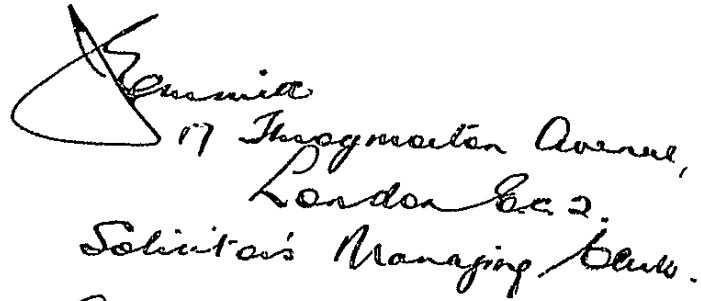 17 Throgmorton Avenue,
London E.C.2.
Solicitor's Managing Clerk.